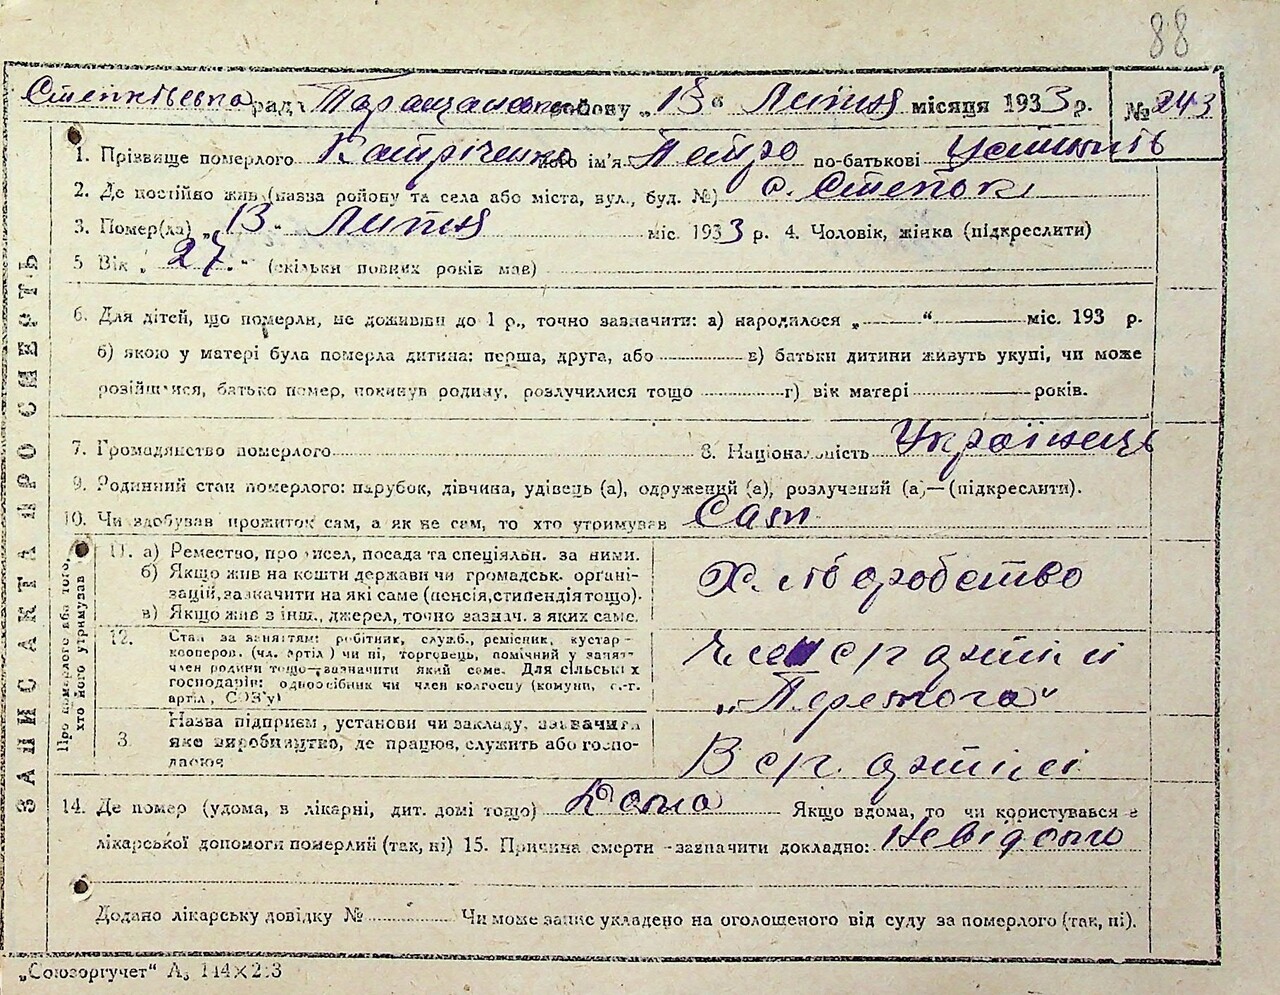 88
Степківська рада Таращанського району „13“ Липня місяця 1933 р. № 243
1. Прізвище померлого його ім'я Петро по-батькові
2. Де постійно жив (назва району та села або міста, вул., буд. №) с. Степок
3. Помер(ла) „13“ Липня міс. 1933 р. 4. Чоловік, жінка (підкреслити)
5 Вік „27.“ (скільки повних років мав)
6. Для дітей, що померли, не доживши до 1 р., точно зазначити: а) народилося „ “ міс. 193 р.
б) якою у матері була померла дитина: перша, друга, або в) батьки дитини живуть укупі, чи може
розійшлися, батько помер, покинув родину, розлучилися тощо г) вік матері років.
7. Громадянство померлого 8. Національність Українець
9. Родинний стан померлого: парубок, дівчина, удівець (а), одружений (а), розлучений (а)—(підкреслити).
10. Чи здобував прожиток сам, а як не сам, то хто утримував Сам
ЗАПИС АКТА ПРО СМЕРТЬ
Про померлого або того, хто його утримував
11. а) Ремество, промисел, посада та спеціяльн. за ними.
б) Якщо жив на кошти держави чи громадськ. органі-
зацій, зазначити на які саме (пенсія, стипендія тощо).
в) Якщо жив з інш. джерел, точно зазнач. з яких саме.
Хліборобство
12. Стан за заняттям: робітник, служб., ремісник, кустар-
кооперов. (чл. артіл) чи ні, торговець, помічний у занят.
член родини тощо—зазначити який саме. Для сільських
господарів: одноосібник чи член колгоспу (комуни, с.-г.
артіл, СОЗ'у)
Член ср артілі
„Перемога“
3. Назва підприєм, установи чи закладу, зазначити
яке виробництво, де працює, служить або госпо-
дарює
В ср. артілі
14. Де помер (удома, в лікарні, дит. домі тощо) Дома Якщо вдома, то чи користувався з
лікарської допомоги померлий (так, ні) 15. Причина смерти - зазначити докладно: Невідомо
Додано лікарську довідку № Чи може запис укладено на оголошеного від суду за померлого (так, ні).
„Союзоргучет“ А₅ 144×203